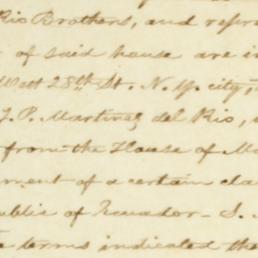 Rio Brothers, and repre
of said house are in
West 28th St. N. Y. city,
J. P. Martinez del Rio,
from the House of M
ment of a certain cla
public of Ecuador - S.
terms indicated the